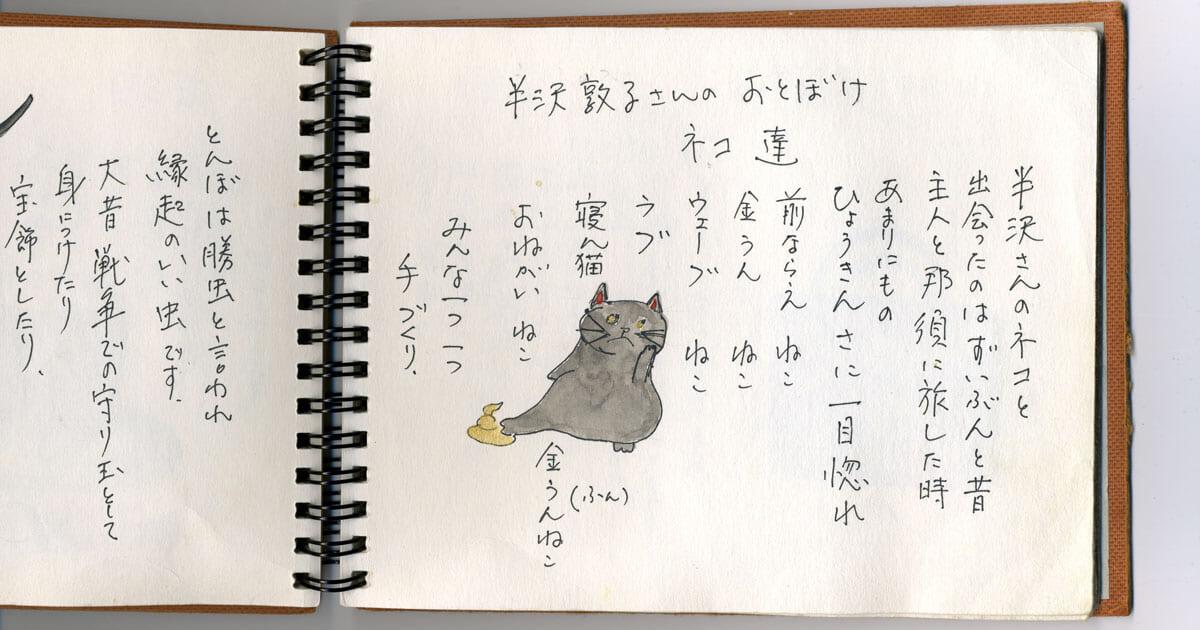 半沢敦子さんの おとぼけ
ネコ達
半沢さんのネコと
出会ったのはずいぶんと昔
主人と那須に旅した時
あまりにもの
ひょうきんさに一目惚れ
前ならえ ねこ
金うん ねこ
ウェーブ ねこ
ラブ
寝ん猫
おねがい ねこ
みんな一つ一つ
手づくり.
金うんねこ
(ふん)
とんぼは勝虫と言われ
縁起のいい虫です.
大昔 戦争での守り玉として
身につけたり
宝飾としたり、